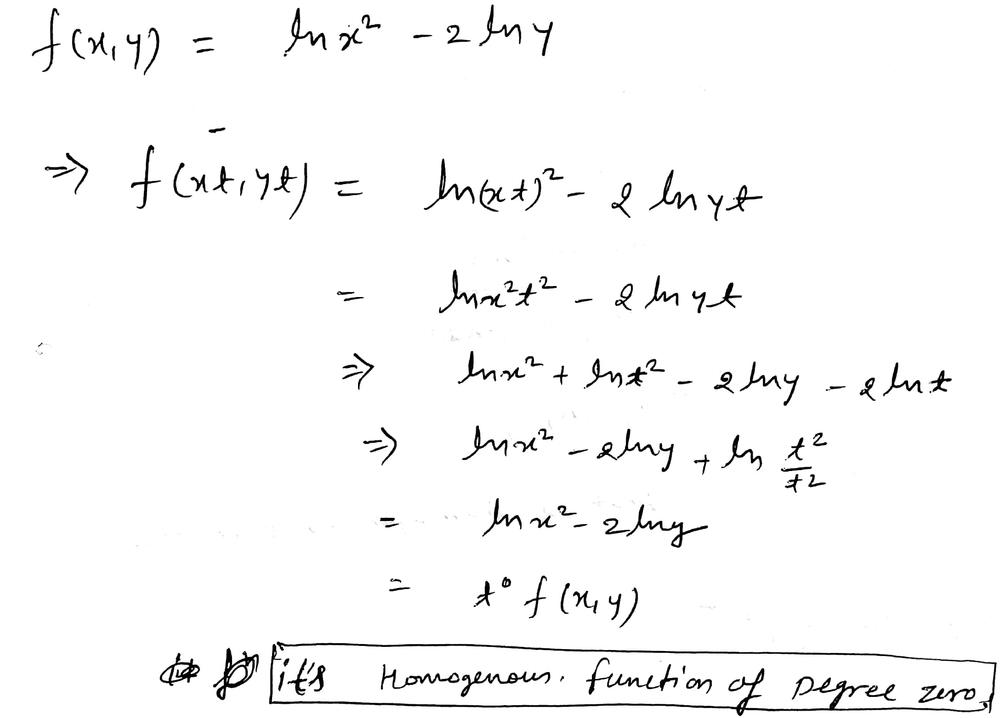 f(x,y) = ln x² - 2 ln y
⇒ f(xt, yt) = ln(xt)² - 2 ln yt
= ln x²t² - 2 ln yt
⇒ ln x² + ln t² - 2 ln y - 2 ln t
⇒ ln x² - 2 ln y + ln t²/t²
= ln x² - 2 ln y
= t⁰ f(x,y)
it's Homogenous. function of Degree zero.